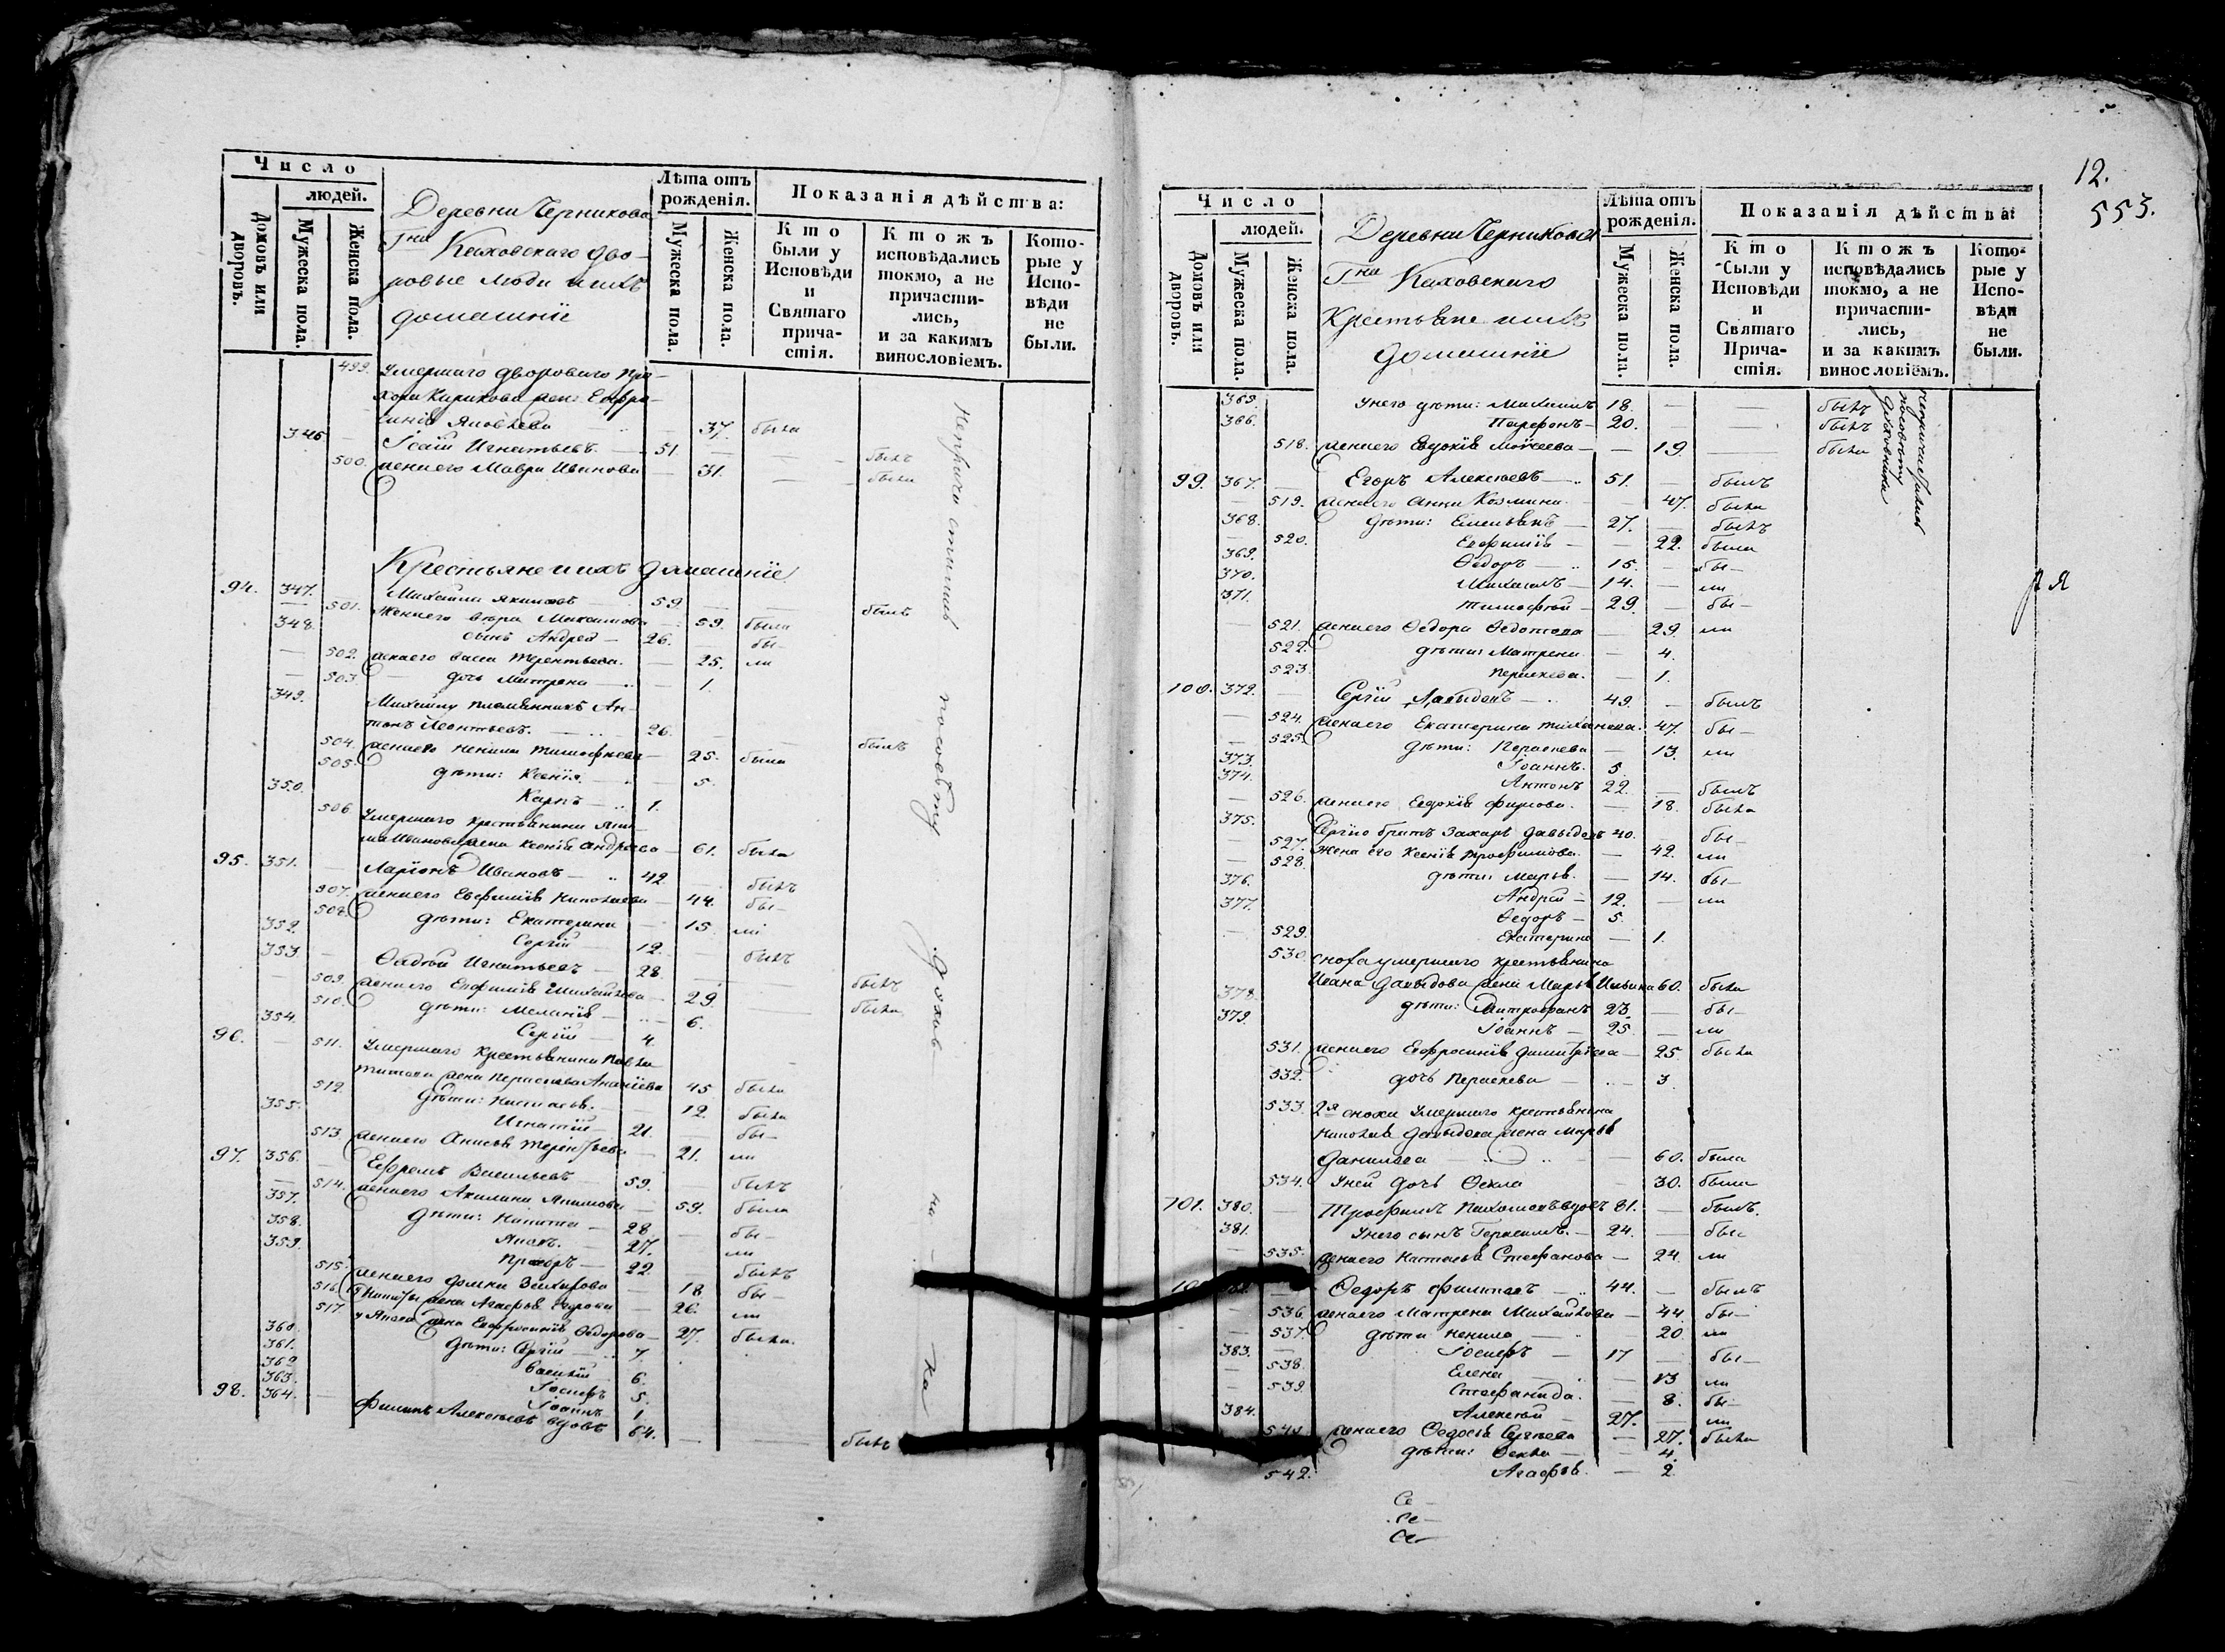 Число
людей.
Домовъ или дворовъ.
Мужеска пола.
Женска пола.
Деревни Черникова
Гна Каховскаго дво-
ровые люди и ихъ
домашніе
Лѣта отъ рожденія.
Мужеска пола.
Женска пола.
Показанія дѣйства:
Кто были у Исповѣди и Святаго причастія.
Ктожъ исповѣдались токмо, а не причастились, и за какимъ винословіемъ.
Которые у Исповѣди не были.
499. Умершаго двороваго Про-
хора Кирикова жена Евфро-
синія Яковлева 37. была
346 Іосій Игнатьевъ 51 былъ
500. жена его Мавра Иванова 31. была
Крестьяне и ихъ домашніе
94. 347. Михаилъ Якимовъ 59. былъ
501. Жена его Максимова 59. была
348. сынъ Андрей 26. бы-
502. жена его Терентьева. 25. ли
503. дочь Матрена 1.
349. Михаилу племянникъ Ан-
тонъ Леонтьевъ. 26. былъ
504. жена его Ненила Тимофеева 25. была
505. дѣти: Ксенія. 5.
350. Карпъ 1.
506 Умершаго крестьянина
Иванова жена Ксенія Андреева 61. была
95. 351. Ларіонъ Ивановъ 42 былъ
507. жена его Евфимія Николаева 44. бы-
508. дѣти: Екатерина 15. ли
352. Сергій 12.
353. Фадѣй Игнатьевъ 28 былъ
509. жена его Евфимія Михайлова 29 была
510. дѣти: Меланія 6.
354. Сергій 4.
96. 511. Умершаго крестьянина Павла
Титова жена Параскева Ананіева 45 была
512. дѣти: Настасья. 12. была
355. Игнатій 21. бы-
513. жена его Анисья Терентьева 21. ли
97. 356. Ефремъ Васильевъ 59. былъ
514. жена его Акилина Якимова 59. была
357. дѣти: Никита 28 бы-
358. Яковъ. 27. ли
359. Прохоръ 22. былъ
515. жена его Домна Захарова 18. бы-
516. у Никиты жена Агафья 26. ли
517. у Якова жена Евфросинія Федорова 27. была.
360. дѣти: Сергій 7.
361. Василій 6.
362 Іосифъ 5.
363. Іоаннъ 1.
98. 364. Филипъ Алексѣевъ вдовъ 64. былъ
Непричастились по совѣту духовника
12.
553.
Число
людей.
Домовъ или дворовъ.
Мужеска пола.
Женска пола.
Деревни Черникова
Гна Каховскаго
Крестьяне и ихъ
домашніе
Лѣта отъ рожденія.
Мужеска пола.
Женска пола.
Показанія дѣйства:
Кто были у Исповѣди и Святаго Причастія.
Ктожъ исповѣдались токмо, а не причастились, и за какимъ винословіемъ.
Которые у Исповѣди не были.
365. У него дѣти: Михаилъ 18. былъ
366. Парфенъ 20. былъ
518. жена его Евдокія Моисеева 19. была
непричастились по совѣту духовника
99. 367. Егоръ Алексѣевъ 51. былъ
519. жена его Анна Козмина 47. была
368. дѣти: Емельянъ 27. былъ
520. Евфимія 22. была
369. Федоръ 15. бы-
370. Михаилъ 14. ли
371. Тимофей 29. бы-
521. жена его Федора Федотова 29. ли
522. дѣти: Матрена 4.
523. Параскева. 1.
100. 372. Сергій Давыдовъ 49. былъ
524. жена его Екатерина 47. бы-
525. дѣти: Параскева 13. ли
373. Іоаннъ. 5.
374. Антонъ 22. былъ
526. жена его Евдокія Фирсова. 18. была
375. Сергію братъ Захаръ Давыдовъ 40. бы-
527. Жена его Ксенія Трофимова. 42. ли
528. дѣти: Марья. 14. бы-
376. Андрей 12. ли
377. Федоръ 5.
529. Екатерина 1.
530. сноха умершаго крестьянина
Ивана Давыдова жена Марья Ильина 60. была
378. дѣти: Митрофанъ 23. бы-
379. Іоаннъ 25. ли
531. жена его Евфросинія Димитріева 25. была
532. дочь Параскева 3.
533. 2я сноха умершаго крестьянина
Николая Давыдова жена Марья
Данилова 60. была
534. У ней дочь Фекла 30. была
101. 380. Трофимъ Пахомовъ вдовъ 81. былъ.
381. У него сынъ Герасимъ. 24. бы-
535. жена его Настасья Стефанова 24 ли
Федоръ Филиповъ 44. былъ
536. жена его Матрена Михайлова 44. бы-
537. дѣти Ненила 20. ли
383. Іосифъ 17 бы-
538. Елена 13 ли
539. Стефанида. 8. бы-
384. Алексѣй 27. ли
жена его Федосья Сергѣева 27. была
дѣти: Фекла 4.
542. Агафья. 2.
Се-
Се-